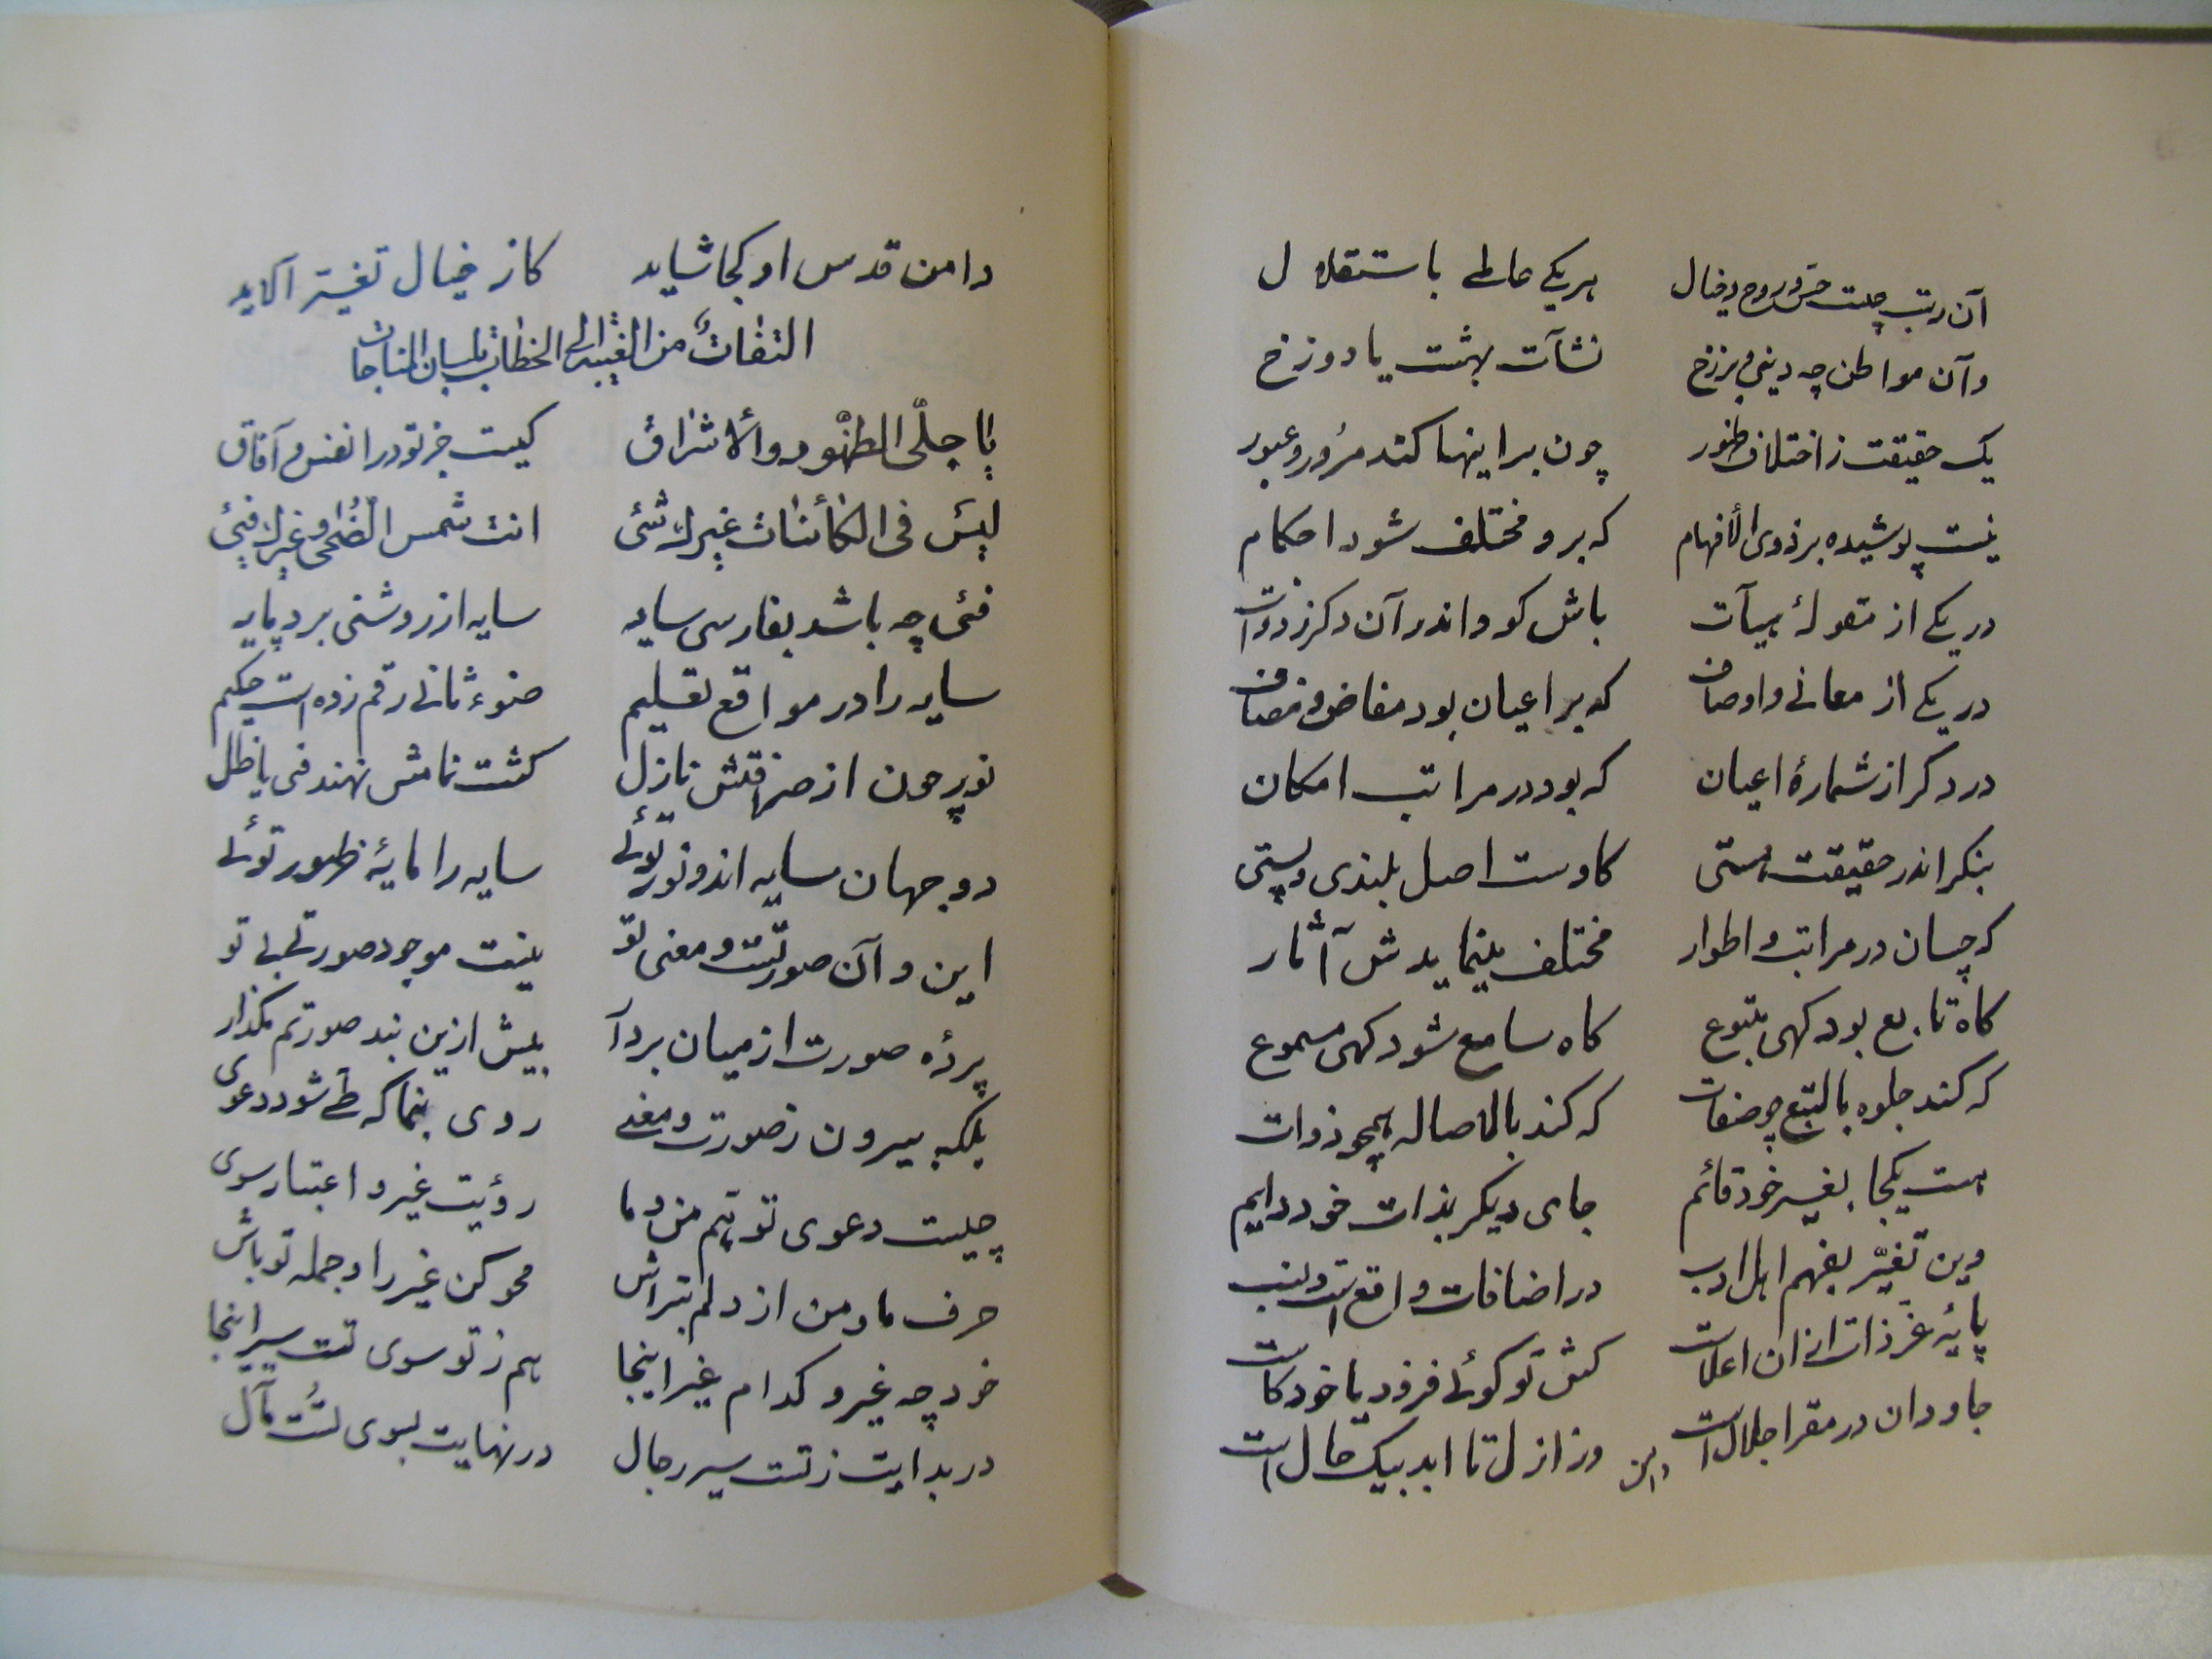 آن رتب چیست حس و روح و خیال    هر یکی عالمی باستقلال
وآن مواطن چه دینی و برزخ    نشآت بهشت یا دوزخ
یک حقیقت ز اختلاف ظهور    چون بر اینها کند مرور و عبور
نیست پوشیده بر ذوی الأفهام    که برو مختلف شود احکام
در یکی از مقولهٔ هیآت    باش کو و اندر آن دکر ز ذوات
در یکی از معانی و اوصاف    که بر اعیان بود مفاض و مضاف
در دکر از شمارهٔ اعیان    که بود در مراتب امکان
بنکر اندر حقیقت هستی    کاوست اصل بلندی و پستی
که چسان در مراتب و اطوار    مختلف مینمایدش آثار
کاه تابع بود کهی متبوع    کاه سامع شود کهی مسموع
که کند جلوه بالتبع چو صفات    که کند بالاصاله همچو ذوات
هست یکجا بغیر خود قائم    جای دیکر بذات خود دایم
وین تغیّر بفهم اهل ادب    در اضافات واقع است و نسب
پایهٔ عزّ ذات ازان اعلاست    کش تو کوئی فزود یا خود کاست
جاودان در مقر اجلال است    وز ازل تا ابد بیک حال است
دامن
دامن قدس او کجا شاید    کاز خیال تغیّر آلاید
التفاتٌ من الغیبه الی الخطاب بلسان المناجات
یا جلیّ الظهور والأشراق    کیست جز تو در انفس و آفاق
لیس فی الکائنات غیرک شئی    انت شمس الضّحی و غیرک فیئ
فئی چه باشد بفارسی سایه    سایه از روشنی برد پایه
سایه را در مواقع تقسیم    ضوء ثانی رقم زده است حکیم
نور چون از صرافتش نازل    کشت نامش نهند فی یا ظل
دو جهان سایه اند و نور توئی    سایه را مایهٔ ظهور توئی
این و آن صورتست و معنی تو    نیست موجود صورتی بی تو
پردهٔ صورت از میان بردآ    بیش ازین بند صورتم مکذار
بلکه بیرون ز صورت و معنی    روی بنما که طی شود دعوی
چیست دعوی توهّم من و ما    رؤیت غیر و اعتبار سوی
حرف ما و من از دلم بتراش    محو کن غیر را و جمله تو باش
خود چه غیر و کدام غیر اینجا    هم ز تو سوی تست سیر اینجا
در بدایت ز تست سیر رجال    در نهایت بسوی تست مآل